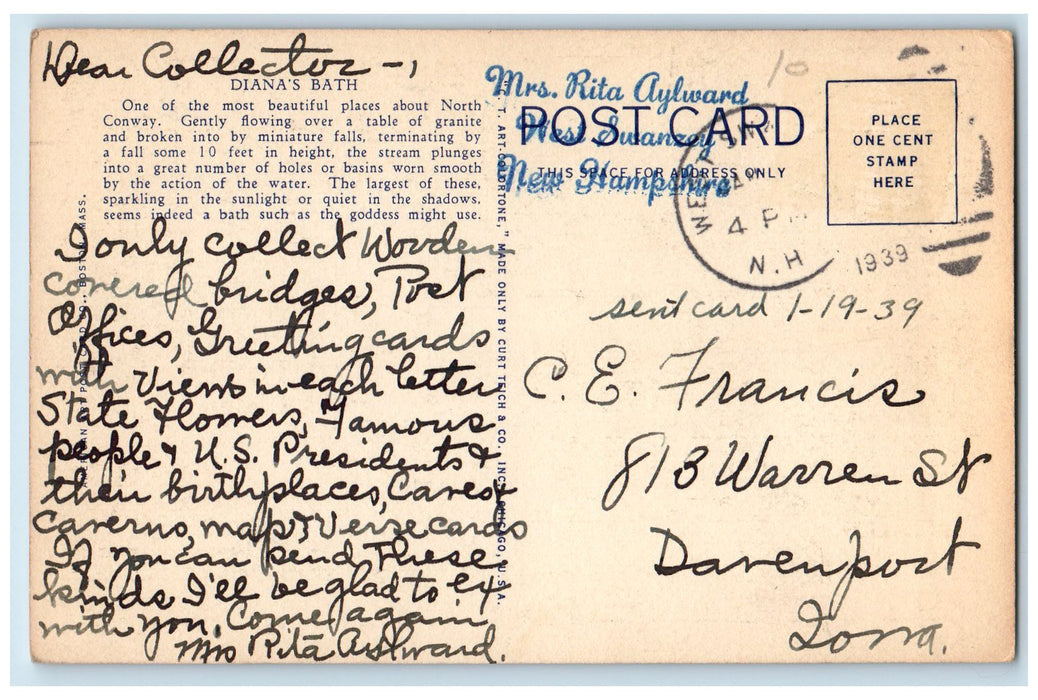 Dear Collector -,
DIANA'S BATH
One of the most beautiful places about North
Conway. Gently flowing over a table of granite
and broken into by miniature falls, terminating by
a fall some 10 feet in height, the stream plunges
into a great number of holes or basins worn smooth
by the action of the water. The largest of these,
sparkling in the sunlight or quiet in the shadows,
seems indeed a bath such as the goddess might use.
I only collect Wooden
covered bridges, Post
Offices, Greeting cards
with views in each letter
State Flowers, Famous
people & U.S. Presidents &
their birthplaces, Caves &
Caverns, maps, Verse cards
If you can send These
kinds I'll be glad to ex
with you. Come again
Mrs Rita Aylward.
MASS.
ART-COLORTONE," MADE ONLY BY CURT TEICH & CO., INC., CHICAGO, U.S.A.
10
Mrs. Rita Aylward
West Swanzey
New Hampshire
POST CARD
THIS SPACE FOR ADDRESS ONLY
4 P
N.H
1939
PLACE
ONE CENT
STAMP
HERE
sent card 1-19-39
C. E. Francis
813 Warren St
Davenport
Iowa.